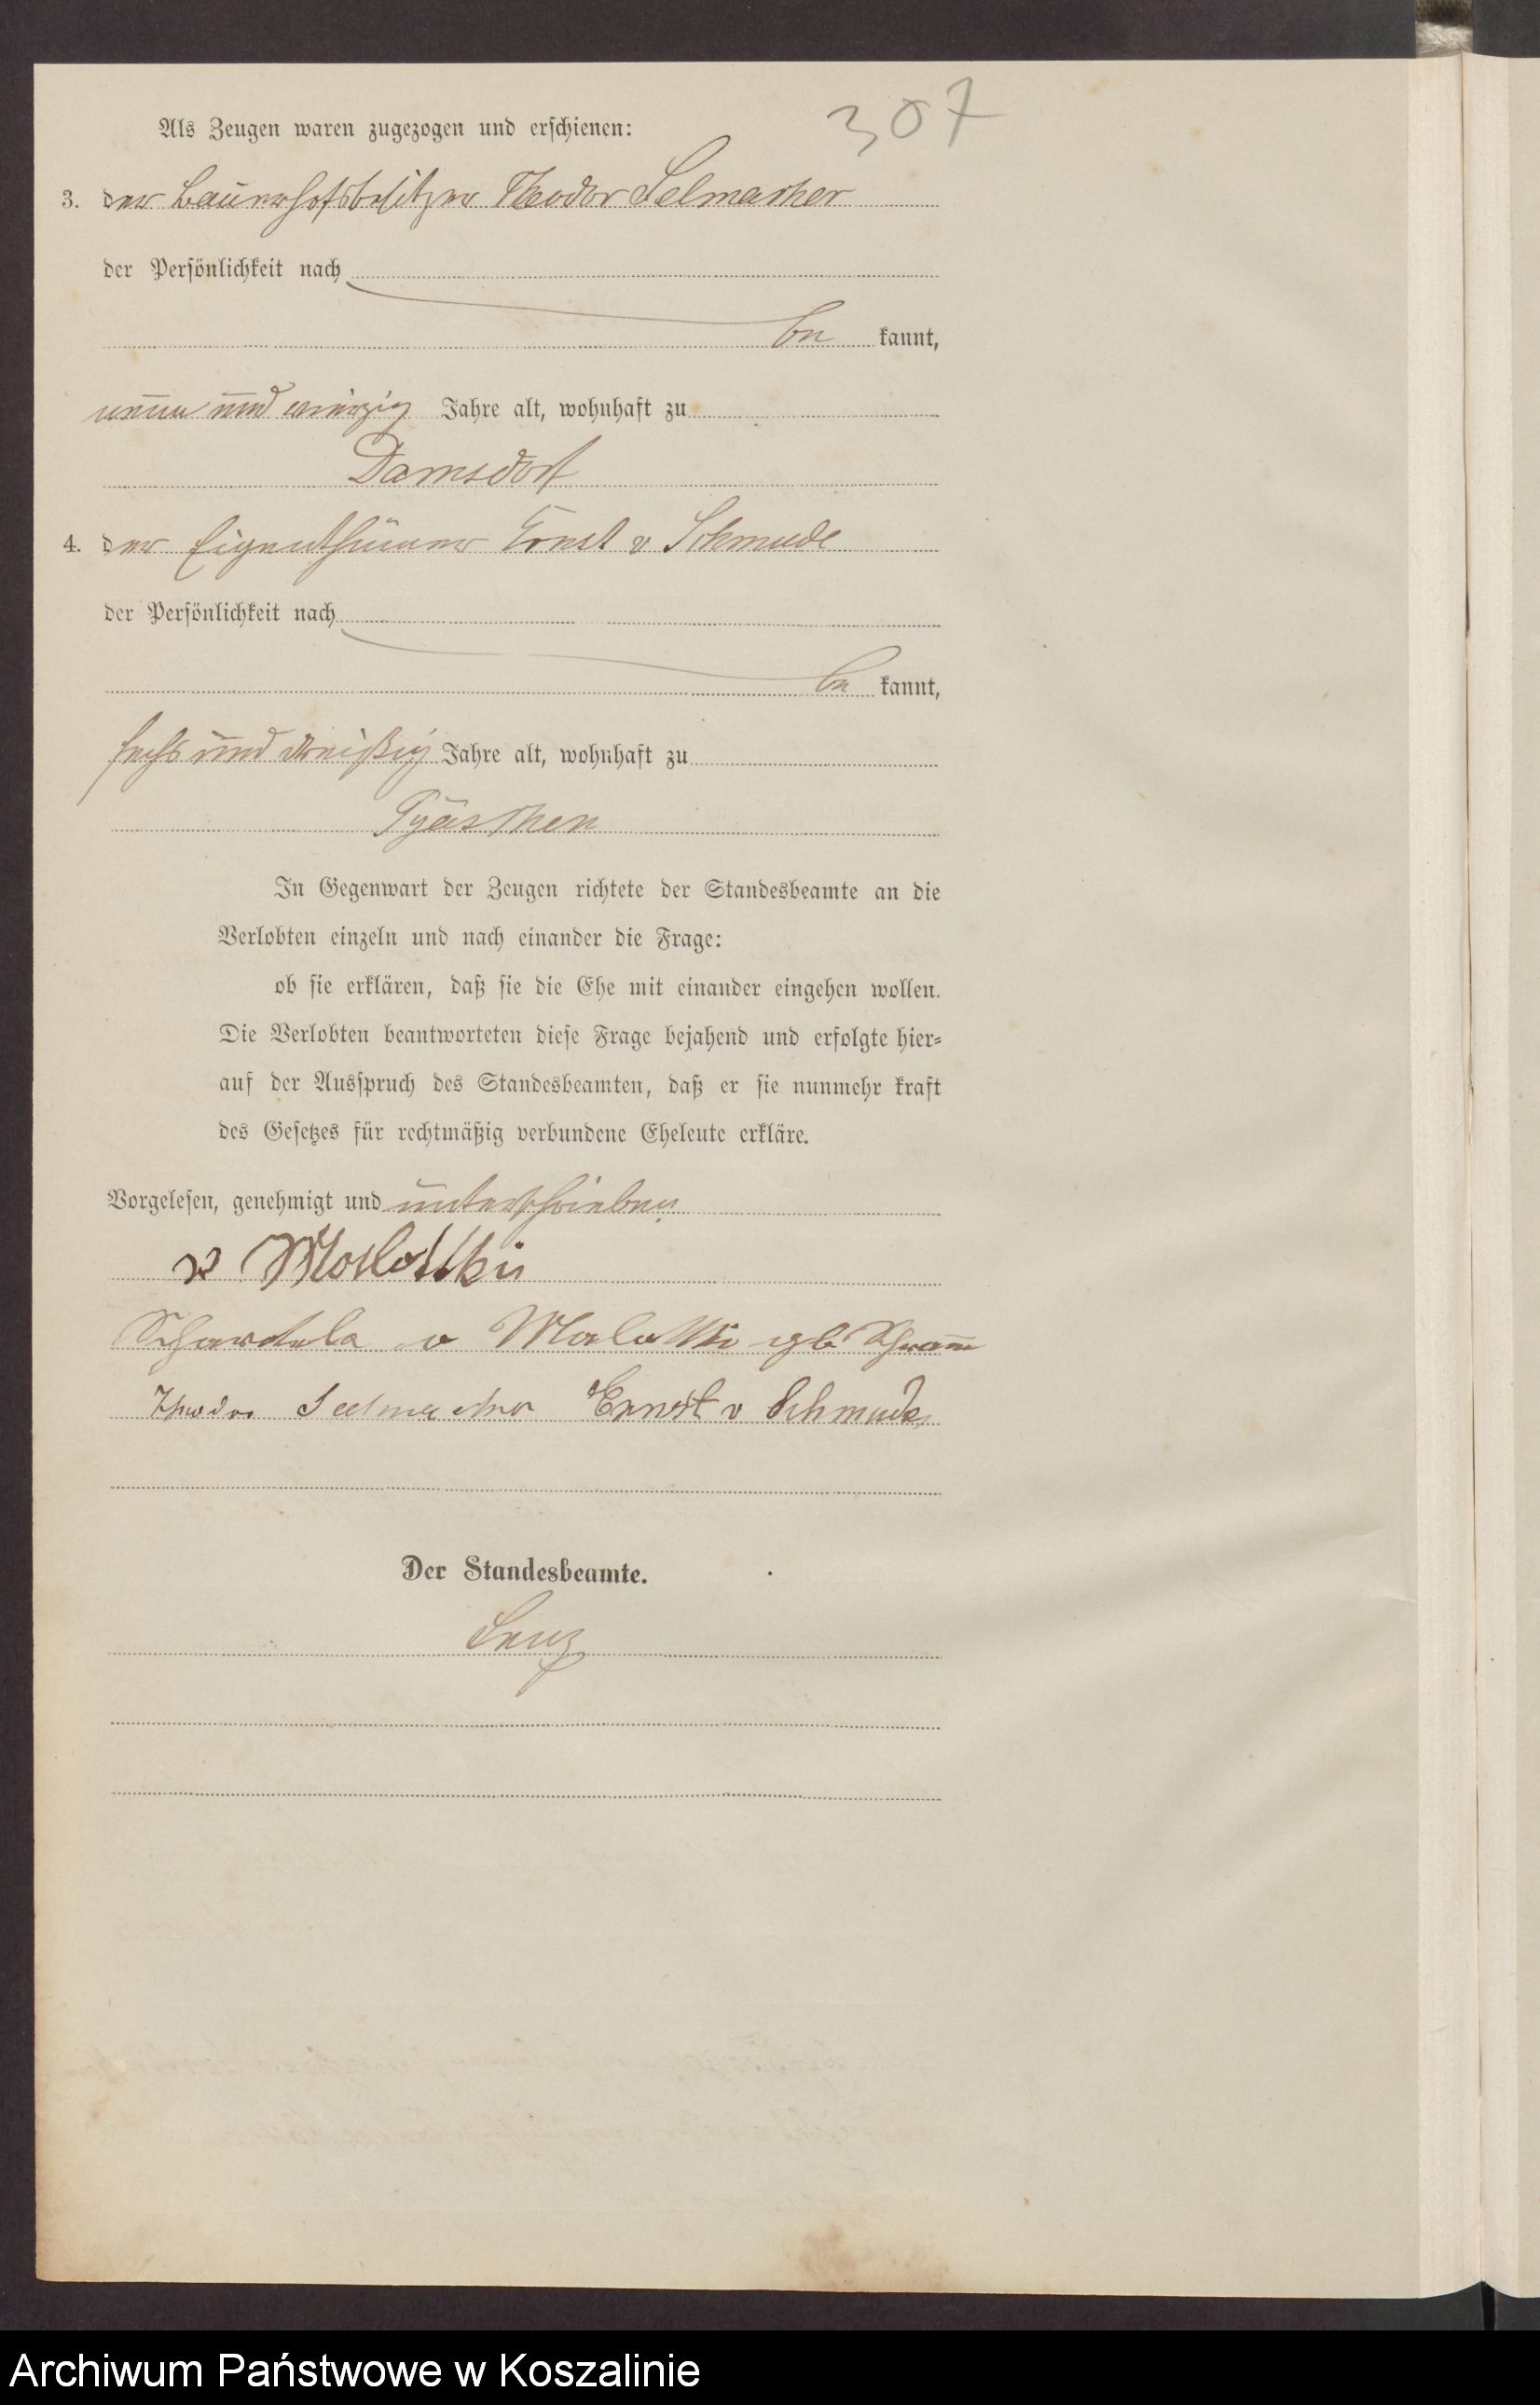 307
Als Zeugen waren zugezogen und erschienen:
3. der Bauerhofsbesitzer Theodor Selmacher
der Persönlichkeit nach
be kannt,
neun und vierzig Jahre alt, wohnhaft zu
Damsdorf
4. der Eigenthümer Ernst v Schmude
der Persönlichkeit nach
be kannt,
sechs und dreißig Jahre alt, wohnhaft zu
Pyaschen
In Gegenwart der Zeugen richtete der Standesbeamte an die
Verlobten einzeln und nach einander die Frage:
ob sie erklären, daß sie die Ehe mit einander eingehen wollen.
Die Verlobten beantworteten diese Frage bejahend und erfolgte hier-
auf der Ausspruch des Standesbeamten, daß er sie nunmehr kraft
des Gesetzes für rechtmäßig verbundene Eheleute erkläre.
Vorgelesen, genehmigt und unterschrieben
v
v Malottki
Theodor Selmacher Ernst v Schmude
Der Standesbeamte.
Lenz
Archiwum Państwowe w Koszalinie